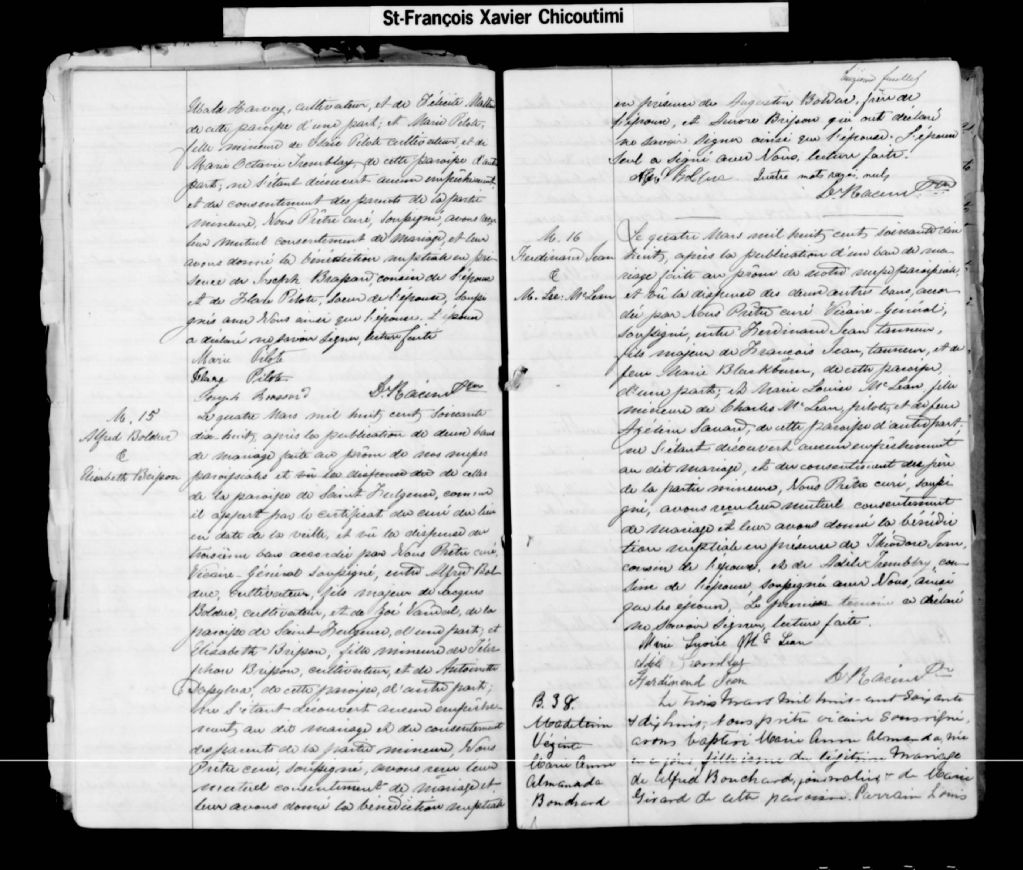 St-François Xavier Chicoutimi
Harvey, cultivateur, et de Félicité
de cette paroisse d'une part; et Marie Pilote,
fille mineure de Pilote cultivateur, et de
Marie Octavie Tremblay, de cette paroisse d'autre
part; ne s'étant découvert aucun empêchement
et du consentement des parents de la partie
mineure, Nous Prêtre curé, soussigné, avons reçu
leur mutuel consentement de mariage, et leur
avons donné la bénédiction nuptiale en pré
sence de Joseph Brassard, cousin de l'époux
et de Pilote, soeur de l'épouse, soussi
gnés avec Nous ainsi que l'épouse. L'époux
a déclaré ne savoir signer, lecture faite
Marie Pilote
Pilote
Joseph Brassard D. Racine Ptre
M. 15
Alfred Bolduc
&
Elisabeth Brisson
Le quatre Mars mil huit cent soixante
dix-huit, après la publication de deux bans
de mariage faite au prône de nos messes
paroissiales et vû la dispense de celles
de la paroisse de Saint Fulgence, comme
il appert par le certificat du curé du lieu
en date de la veille, et vû la dispense du
troisième ban accordée par Nous Prêtre curé,
Vicaire-Général soussigné, entre Alfred Bol
duc, cultivateur, fils majeur de Jacques
Bolduc, cultivateur, et de Zoé de la
paroisse de Saint-Fulgence, d'une part; et
Elisabeth Brisson, fille mineure de Téles
phore Brisson, cultivateur, et de Antoinette
de cette paroisse, d'autre part;
ne s'étant découvert aucun empêche
ment au dit mariage et du consentement
des parents de la partie mineure, Nous
Prêtre curé, soussigné, avons reçu leur
mutuel consentement de mariage et
leur avons donné la bénédiction nuptiale
feuillet
en présence de Augustin Bolduc, frère de
l'épouse, et Brisson qui ont déclaré
ne savoir signer ainsi que l'épouse. L'époux
seul a signé avec Nous, lecture faite.
Quatre mots rayés nuls
D. Racine Ptre
M. 16
Ferdinand Jean
&
M. McLean
Le quatre Mars mil huit cent soixante dix
huit, après la publication d'un ban de ma
riage faite au prône de notre messe paroissiale
et vû la dispense des deux autres bans, accor
dée par Nous Prêtre curé Vicaire-Général,
soussigné, entre Ferdinand Jean tanneur,
fils majeur de François Jean, tanneur, et de
feue Marie Blackburn, de cette paroisse
d'une part; et Marie Louise McLean fille
mineure de Charles McLean, pilote, et de feue
Savard, de cette paroisse d'autre part,
ne s'étant découvert aucun empêchement
au dit mariage, et du consentement du père
de la partie mineure, Nous Prêtre curé, soussi
gné, avons reçu leur mutuel consentement
de mariage et leur avons donné la bénédic
tion nuptiale en présence de Théodore Jean,
cousin de l'époux, et de Adèle Tremblay, cou
sine de l'épouse soussignée avec Nous, ainsi
que les époux, Le premier témoin a déclaré
ne savoir signer, lecture faite.
Marie McLean
Tremblay
Ferdinand Jean D. Racine Ptre
B. 38
Madeleine
Vézina
Marie Anne
Almanada
Bouchard
Le trois Mars mil huit cent soixante
& dix huit, Nous prêtre vicaire soussigné,
avons baptisé Marie Anne Almanda, née
fille issue du légitime mariage
de Alfred Bouchard, journalier & de Marie
Girard de cette paroisse. Parrain Louis